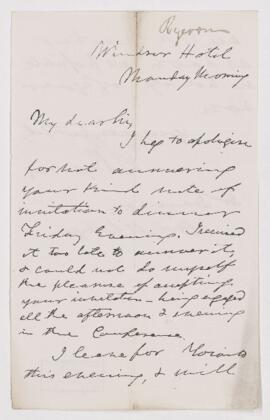 Ryerson
Windsor Hotel
Monday Morning
My dear Sir,
I beg to apologise
for not answering
your kind note of
invitation to dinner
Friday Evening. I received
it too late to answer it,
& could not do myself
the pleasure of accepting
your invitation - being engaged
all the afternoon & evening
in the Conference.
I leave for Toronto
this evening, & will